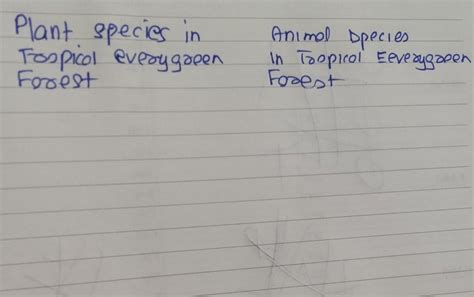 Plant species in
Tropical everygreen
Forest
Animal species
In Tropical Eeverygreen
Forest